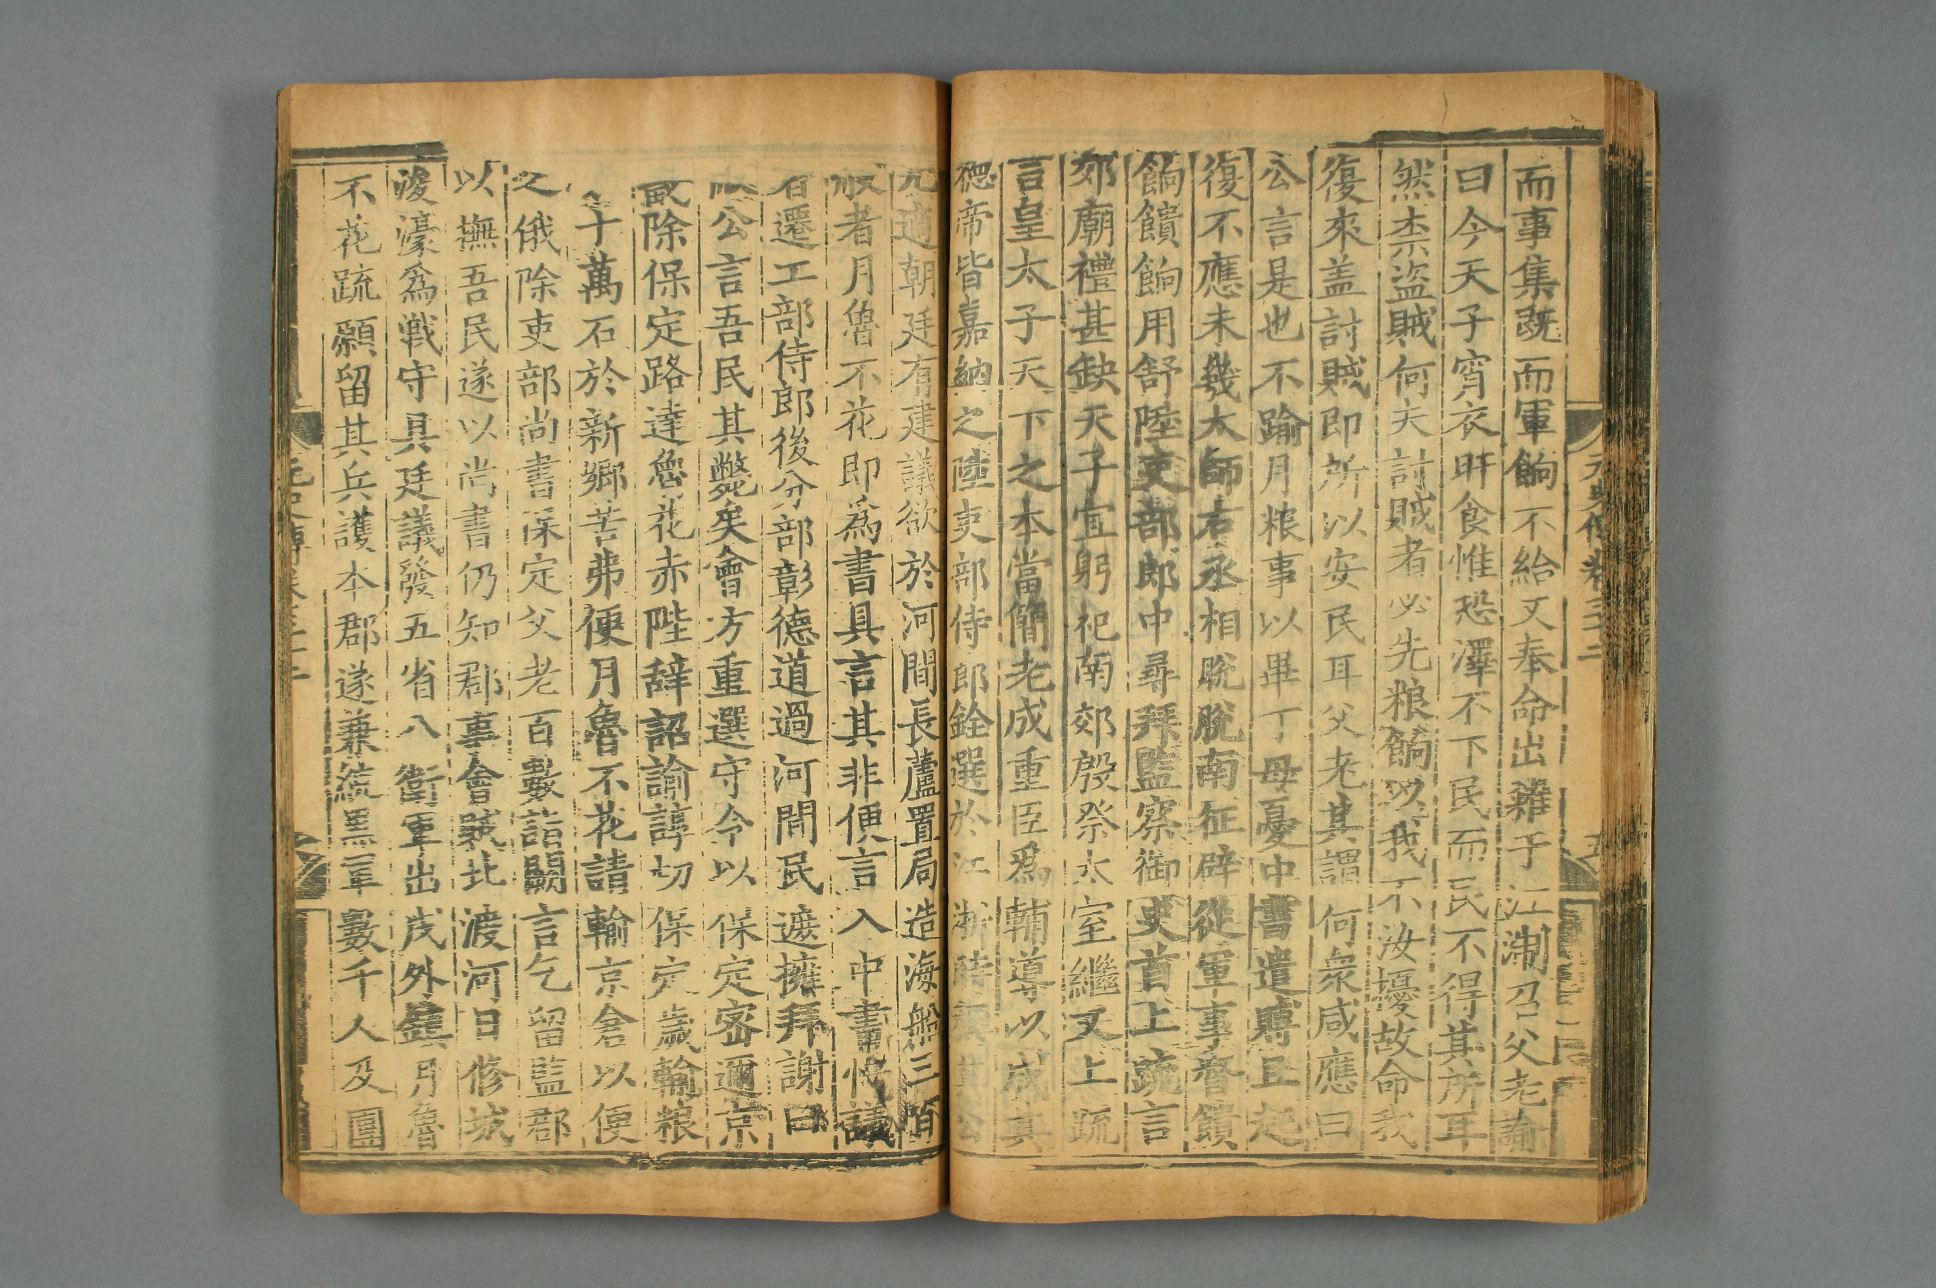 元史傳卷三十二
五
而事集旣而軍餉不給又奉命出糴于江淛召父老諭
曰今天子宵衣旰食惟恐澤不下民而民不得其所耳
然柰盜賊何夫討賊者必先粮餉以我不汝擾故命我
復來盖討賊即所以安民耳父老其謂何衆咸應曰
公言是也不踰月粮事以畢丁母憂中書遣賻且起
復不應未幾太師右丞相脫脫南征辟從軍事督饋
餉饋餉用舒陞吏部郎中尋拜監察御史首上疏言
郊廟禮甚缺天子宜躬祀南郊殷祭太室繼又上疏
言皇太子天下之本當簡老成重臣爲輔導以成其
德帝皆嘉納之陞吏部侍郎銓選於江淛時
先適朝廷有建議欲於河間長蘆置局造海船三百
艘者月魯不花即爲書具言其非便言入中書忤議
者遷工部侍郎後分部彰德道過河間民遮擁拜謝曰
微公言吾民其斃矣會方重選守令以保定密邇京
畿除保定路達魯花赤陛辭詔諭諄切保定歲輸粮
十萬石於新鄉苦弗便月魯不花請輸京倉以便
之俄除吏部尚書保定父老百數詣闕言乞留監郡
以撫吾民遂以尚書仍知郡事會賊北渡河日修城
浚濠爲戰守具廷議發五省八衛軍出戍外鎮月魯
不花疏願留其兵護本郡遂兼統黑軍數千人及團
元史傳卷三十二